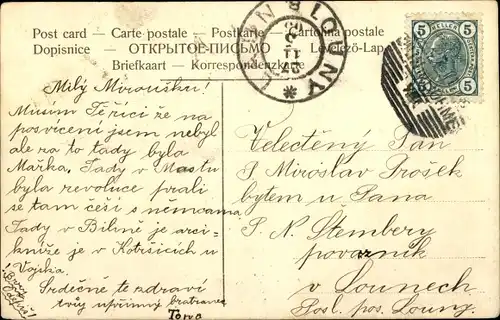 Post card - Carte postale - Postkarte - Cartolina postale
Dopisnice - ОТКРЫТОЕ ПИСЬМО - Levelező-Lap
Briefkaart - Korrespondenzkarte
LOUNY
5 HELLER 5
5 5
Milý Miroušku!
Musím Ti říci že na
posvícení jsem nebyl
ale na to tady byla
Mařka, Tady v Mostu
byla revoluce prali
se tam češi s němcama
Tady v Bilině je arci-
kníže je v Kotršicích u
Vojka.
Srdečně te zdraví
tvůj upřímný bratranec
Velectěný Pan
Miroslav Prošek
bytem u Pana
P. N. Štembery
povozník
v Lounech
Posl. pos. Louny.